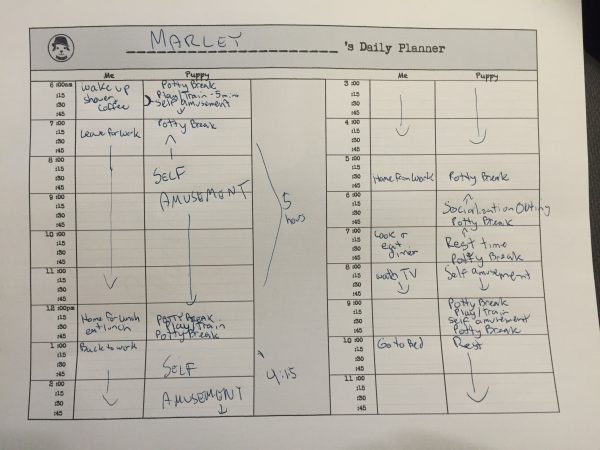 MARLEY 's Daily Planner
Me Puppy
6:00am wake up Potty Break
:15 shower + Play/Train - 5 mins
:30 coffee Self amusement
:45
7:00 Potty Break
:15 Leave for work
:30
:45
8:00
:15 SELF
:30
:45 AMUSEMENT
9:00
:15
:30
:45
10:00
:15
:30
:45
11:00
:15
:30
:45
5
hours
12:00pm
:15 Home for lunch POTTY BREAK
:30 eat lunch Play/Train
:45 Potty Break
1:00 Back to work
:15
:30 SELF
:45
2:00
:15 AMUSEMENT
:30
:45
4:15
Me Puppy
3:00
:15
:30
:45
4:00
:15
:30
:45
5:00
:15
:30 Home from work Potty Break
:45
6:00
:15
:30 Socialization Outing
:45 Potty Break
7:00 Cook or
:15 eat Rest time
:30 dinner
:45 Potty Break
8:00 watch TV Self amusement
:15
:30
:45
9:00 Potty Break
:15 Play/Train
:30 Self amusement
:45 Potty Break
10:00 Go to Bed Rest
:15
:30
:45
11:00
:15
:30
:45